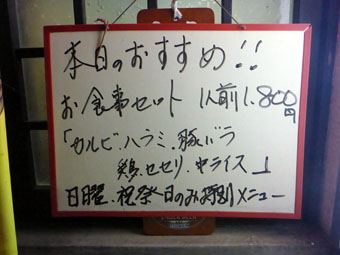 本日のおすすめ!!
お食事セット 1人前1.800円
「カルビ.ハラミ.豚バラ
鶏.セセリ.中ライス」
日曜.祝祭日のみ特別メニュー